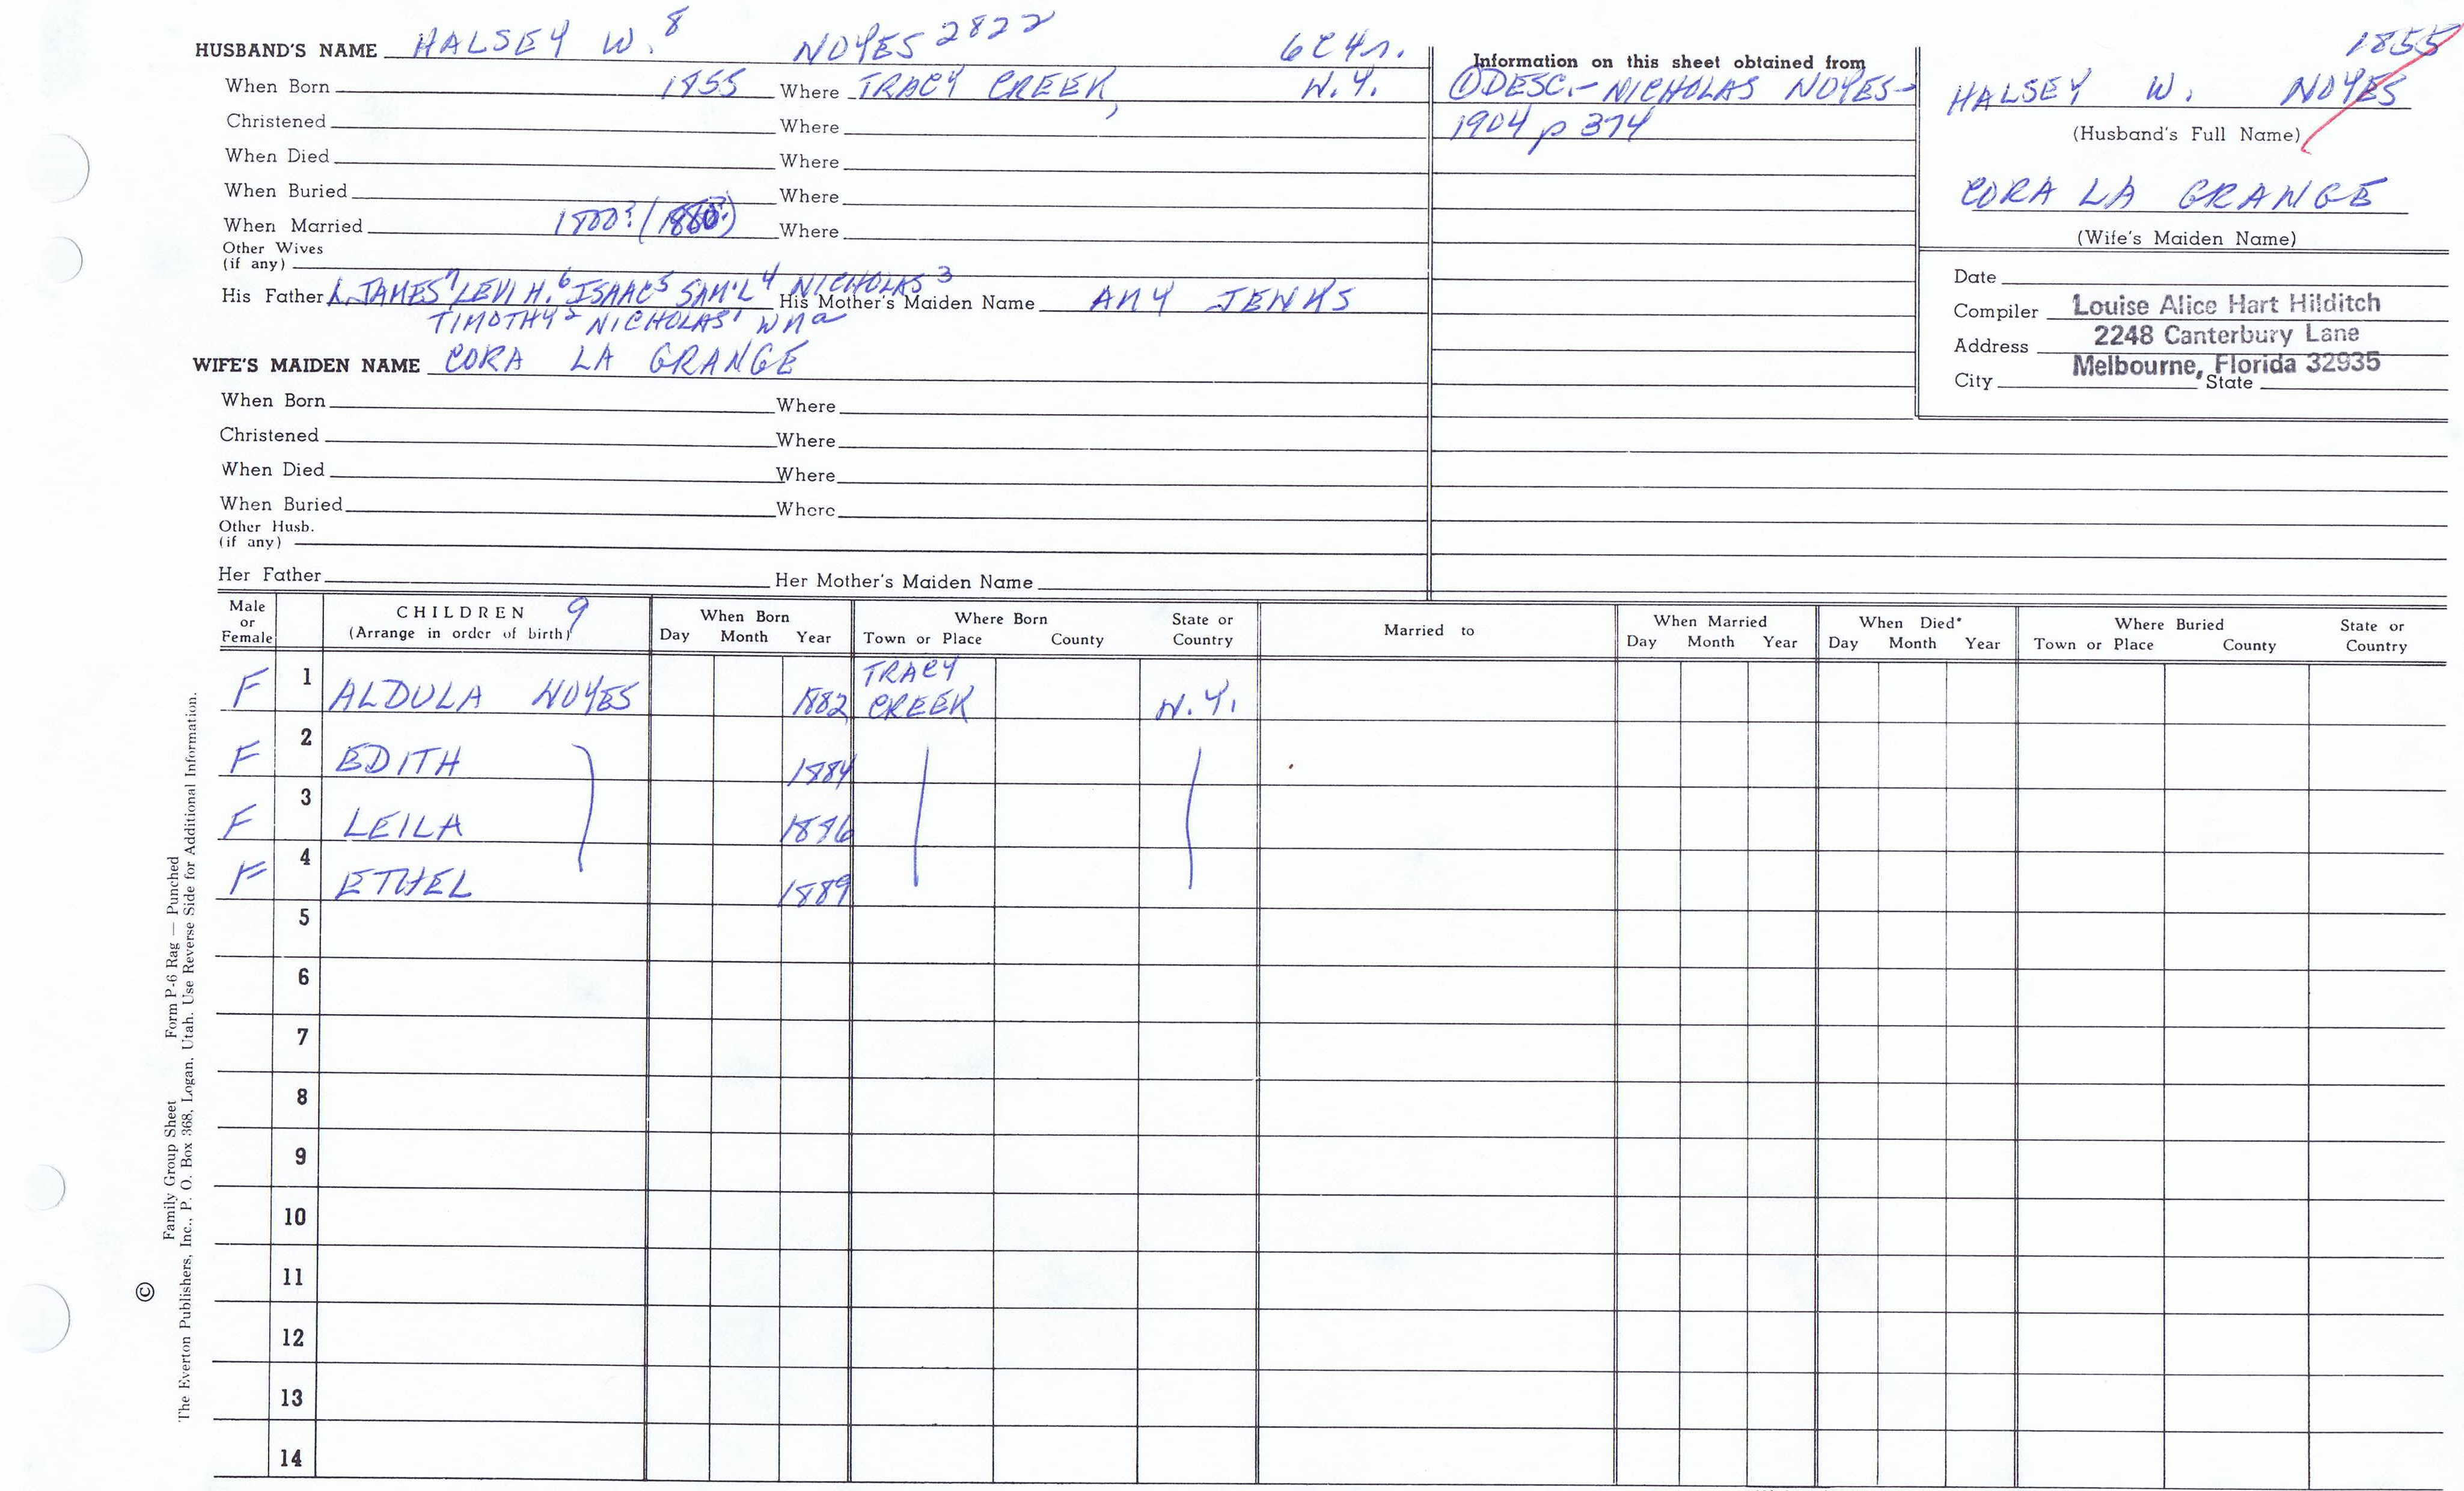 HUSBAND'S NAME HALSEY W. 8 NOYES 2822
When Born 1855 Where TRACY CREEK, N.Y.
Christened Where
When Died Where
When Buried Where
When Married Where
Other Wives
(if any)
His Father JAMES 7 LEVI H. 6 ISAAC 5 SAM'L 4 NICHOLAS 3 His Mother's Maiden Name AMY JENKS
TIMOTHY 2 NICHOLAS 1
WIFE'S MAIDEN NAME CORA LA GRANGE
When Born Where
Christened Where
When Died Where
When Buried Where
Other Husb.
(if any)
Her Father Her Mother's Maiden Name
Information on this sheet obtained from
① DESC.- NICHOLAS NOYES-
1904 p 374
1855
HALSEY W. NOYES
(Husband's Full Name)
CORA LA GRANGE
(Wife's Maiden Name)
Date
Compiler Louise Alice Hart Hilditch
Address 2248 Canterbury Lane
Melbourne, Florida 32935
City State
Male or Female CHILDREN 9 (Arrange in order of birth) When Born Day Month Year Where Born Town or Place County State or Country Married to When Married Day Month Year When Died* Day Month Year Where Buried Town or Place County State or Country
F 1 ALDULA NOYES 1882 TRACY CREEK N.Y.
F 2 EDITH 1884
F 3 LEILA
F 4 ETHEL 1889
5
6
7
8
9
10
11
12
13
14
© Family Group Sheet Form P-6 Rag — Punched
The Everton Publishers, Inc., P. O. Box 368, Logan, Utah. Use Reverse Side for Additional Information.